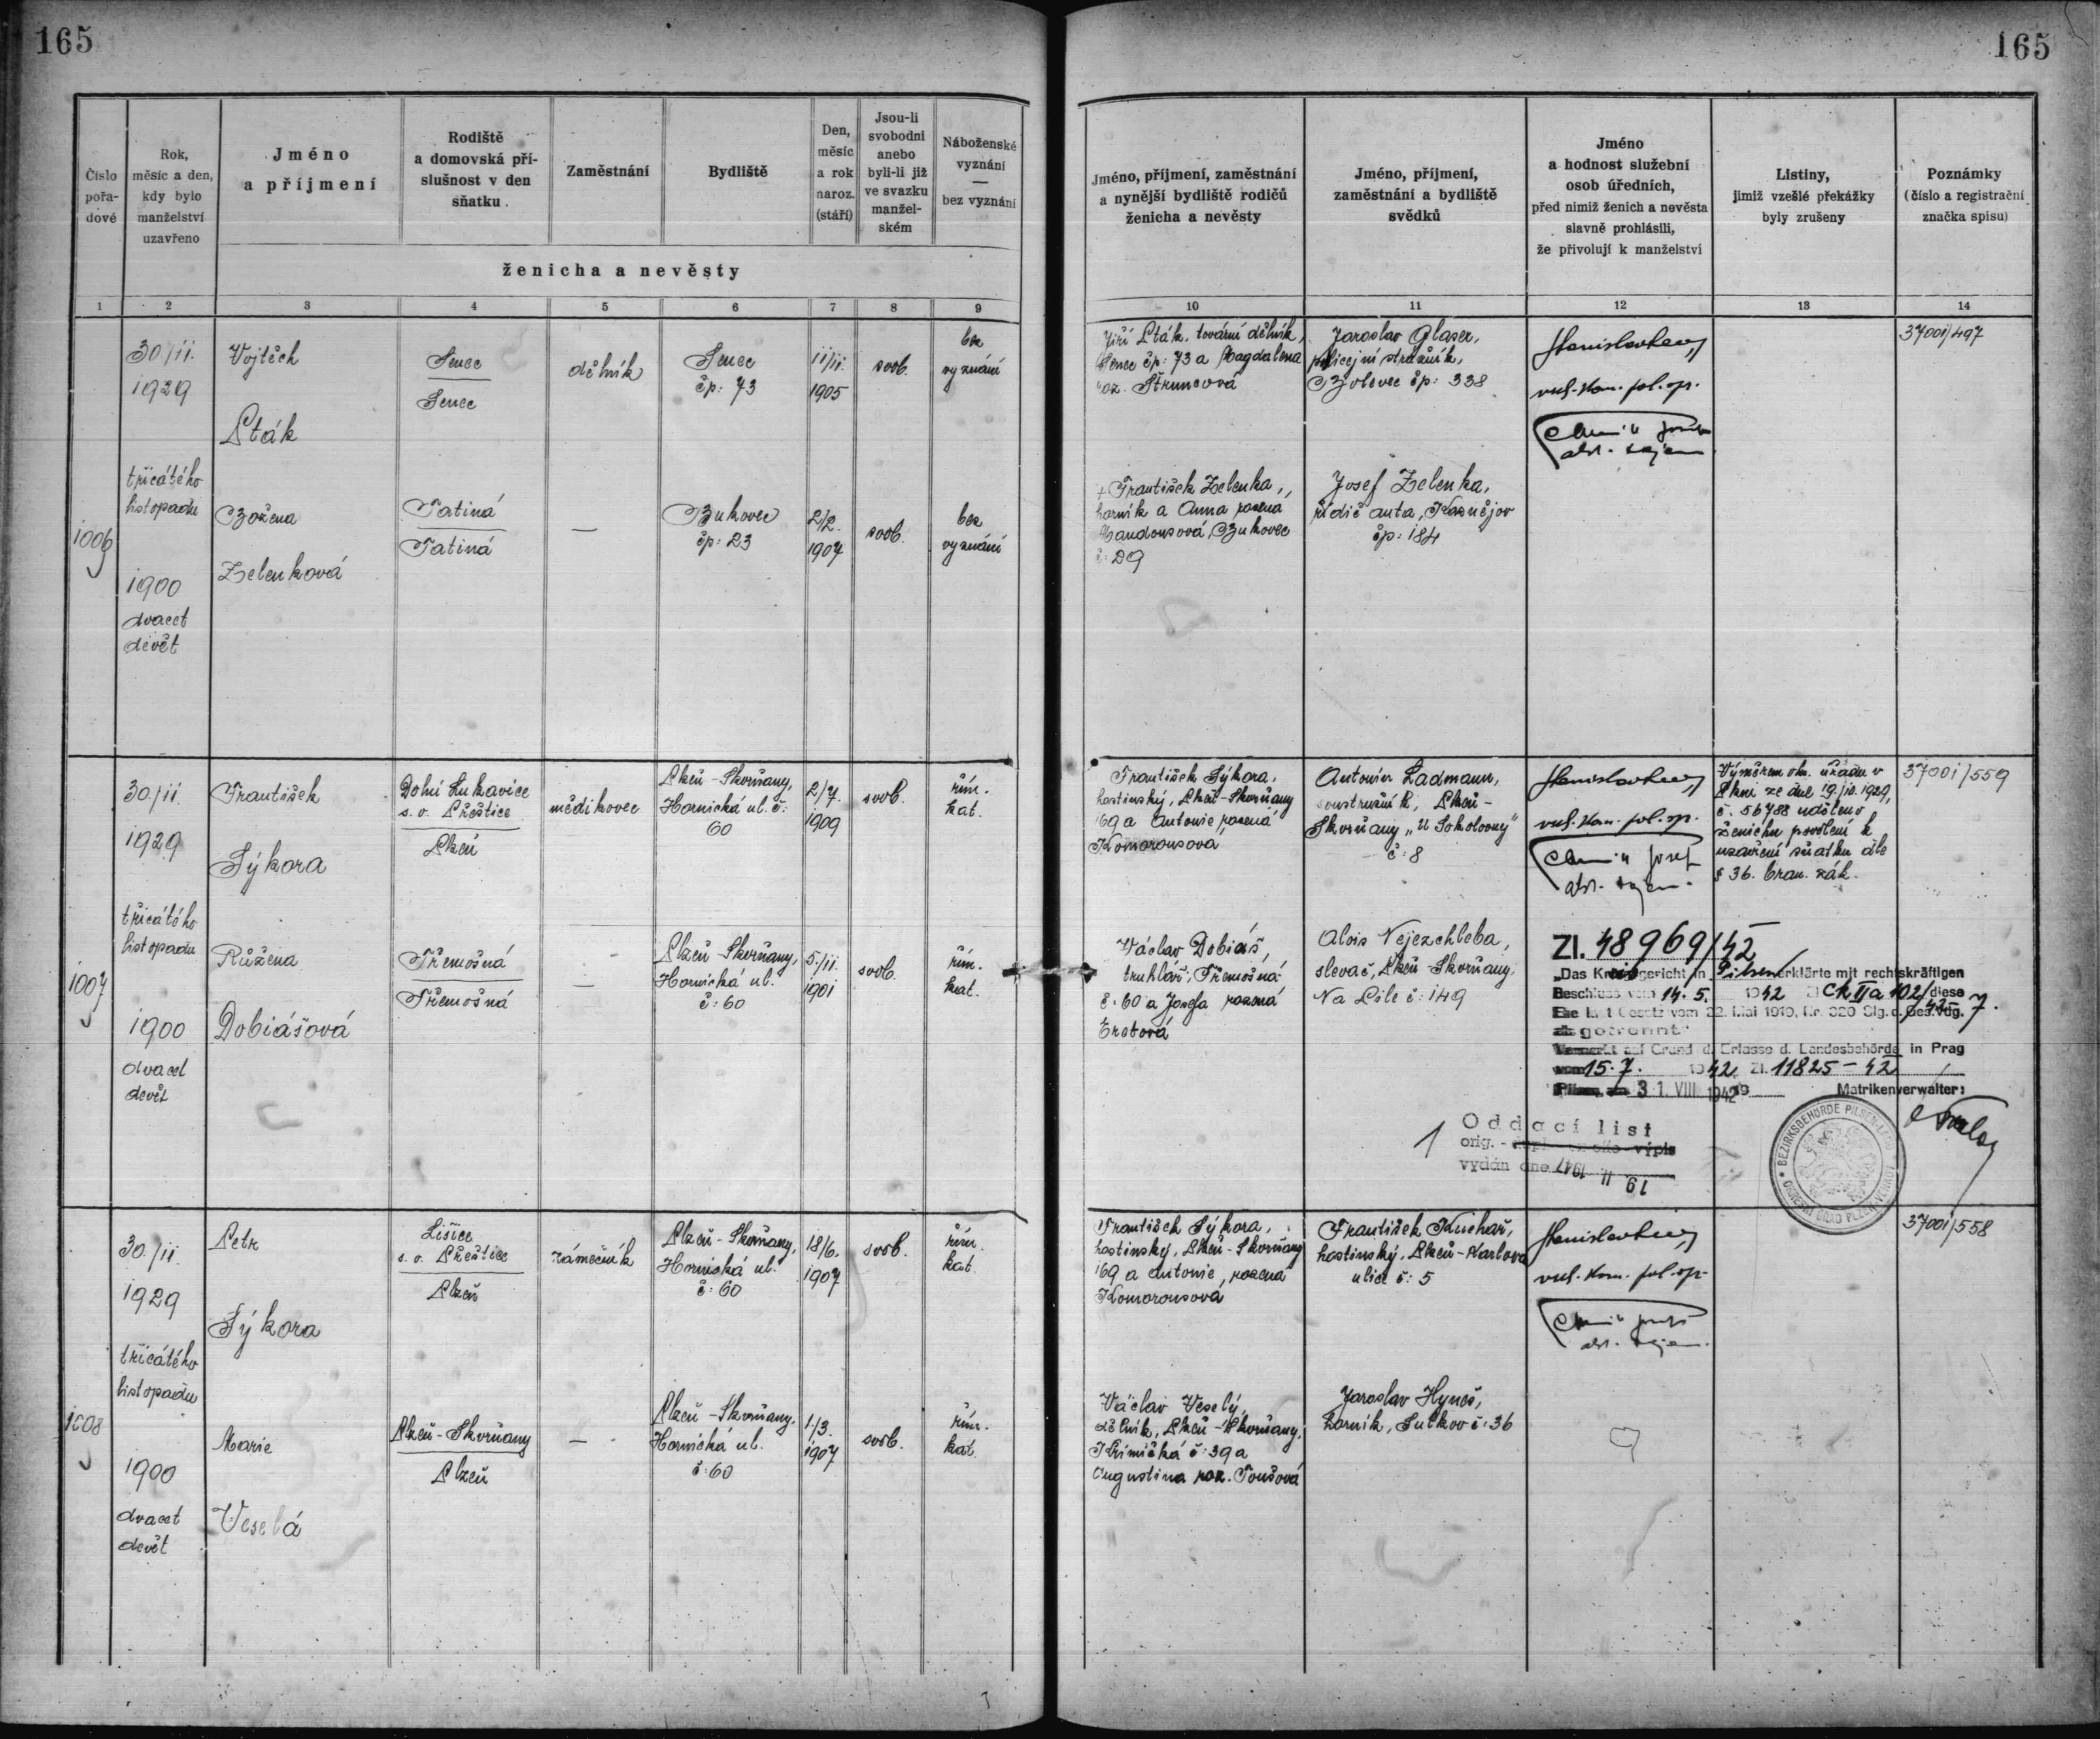 165
165
Číslo pořa-dové
Rok, měsíc a den, kdy bylo manželství uzavřeno
Jméno a příjmení
Rodiště a domovská pří-slušnost v den sňatku
Zaměstnání
Bydliště
Den, měsíc a rok naroz. (stáří)
Jsou-li svobodni anebo byli-li již ve svazku manžel-ském
Náboženské vyznání — bez vyznání
ženicha a nevěsty
Jméno, příjmení, zaměstnání a nynější bydliště rodičů ženicha a nevěsty
Jméno, příjmení, zaměstnání a bydliště svědků
Jméno a hodnost služební osob úředních, před nimiž ženich a nevěsta slavně prohlásili, že přivolují k manželství
Listiny, jimiž vzešlé překážky byly zrušeny
Poznámky (číslo a registrační značka spisu)
1 2 3 4 5 6 7 8 9
10 11 12 13 14
1006
30/11.
1929
třicátého
listopadu
1900
dvacet
devět
Vojtěch
Pták
Senec
Senec
dělník
Senec
čp: 73
11/11.
1905
svob.
bez
vyznání
Božena
Zelenková
Tatiná
Tatiná
—
Bukovec
čp: 23
2/2.
1907
svob.
bez
vyznání
Jiří Pták, tovární dělník,
Senec čp: 73 a Magdalena
roz. Štruncová
Jaroslav Glaser,
policejní strážník,
Bolevec čp: 338
vrch. kom. pol. sp.
37001/497
+ František Zelenka,
horník a Anna rozená
Mandousová, Bukovec
č: 29
Josef Zelenka,
řidič auta, Kaznějov
čp: 184
1007
30./11.
1929
třicátého
listopadu
1900
dvacet
devět
František
Sýkora
Dolní Lukavice
s. o. Přeštice
Plzeň
mědikovec
Plzeň-Skvrňany,
Hornická ul. č:
60
2/7.
1909
svob.
řím.
kat.
Růžena
Dobiášová
Třemošná
Třemošná
—
Plzeň-Skvrňany,
Hornická ul.
č: 60
5./11.
1901
svob.
řím.
kat.
František Sýkora,
hostinský, Plzeň-Skvrňany
169 a Antonie rozená
Komorousová
Antonín Ladmann,
soustružník, Plzeň-
Skvrňany „U Sokolovny"
č: 8
vrch. kom. pol. sp.
Josef
Výměrem okr. úřadu v
Plzni ze dne 19./10. 1929,
č. 56788 uděleno
ženichu povolení k
uzavření sňatku dle
§ 36. bran. zák.
37001/559
Václav Dobiáš,
truhlář, Třemošná
č. 60 a Josefa rozená
Alois Nejezchleba,
slevač, Plzeň-Skvrňany,
Na Lile č: 149
Zl. 48969/42
„Das Kreisgericht in Pilsen erklärte mit rechtskräftigen
Beschluss vom 14. 5. 1942 Zl Ck IIa 102/42 diese 7.
Ehe laut Gesetz vom 22. Mai 1919, Nr. 320 Slg. d. Ges. Vdg.
als getrennt"
Vermerkt auf Grund d. Erlasse d. Landesbehörde in Prag
vom 15. 7. 1942 Zl. 11825 - 42
Pilsen, am 31. VIII. 1942
Matrikenverwalter:
BEZIRKSBEHÖRDE PILSEN-LAND
OKRESNÍ ÚŘAD PLZEŇ-VENKOV
1 Oddací list
orig. - výpis
vydán dne
19 11 1947
1008
30./11
1929
třicátého
listopadu
1900
dvacet
devět
Petr
Sýkora
Lišice
s. o. Přeštice
Plzeň
zámečník
Plzeň-Skvrňany,
Hornická ul.
č: 60
18/6.
1907
svob.
řím.
kat.
Marie
Veselá
Plzeň-Skvrňany
Plzeň
—
Plzeň-Skvrňany,
Hornická ul.
č: 60
1./3.
1907
svob.
řím.
kat.
František Sýkora,
hostinský, Plzeň-Skvrňany
169 a Antonie, rozená
Komorousová
František Kuchař,
hostinský, Plzeň-Karlova
ulice č: 5
vrch. kom. pol. sp.
37001/558
Václav Veselý,
dělník, Plzeň-Skvrňany,
Křimická č: 39 a
Augustina roz. Toušová
Jaroslav Hyneš,
horník, Sulkov č: 36